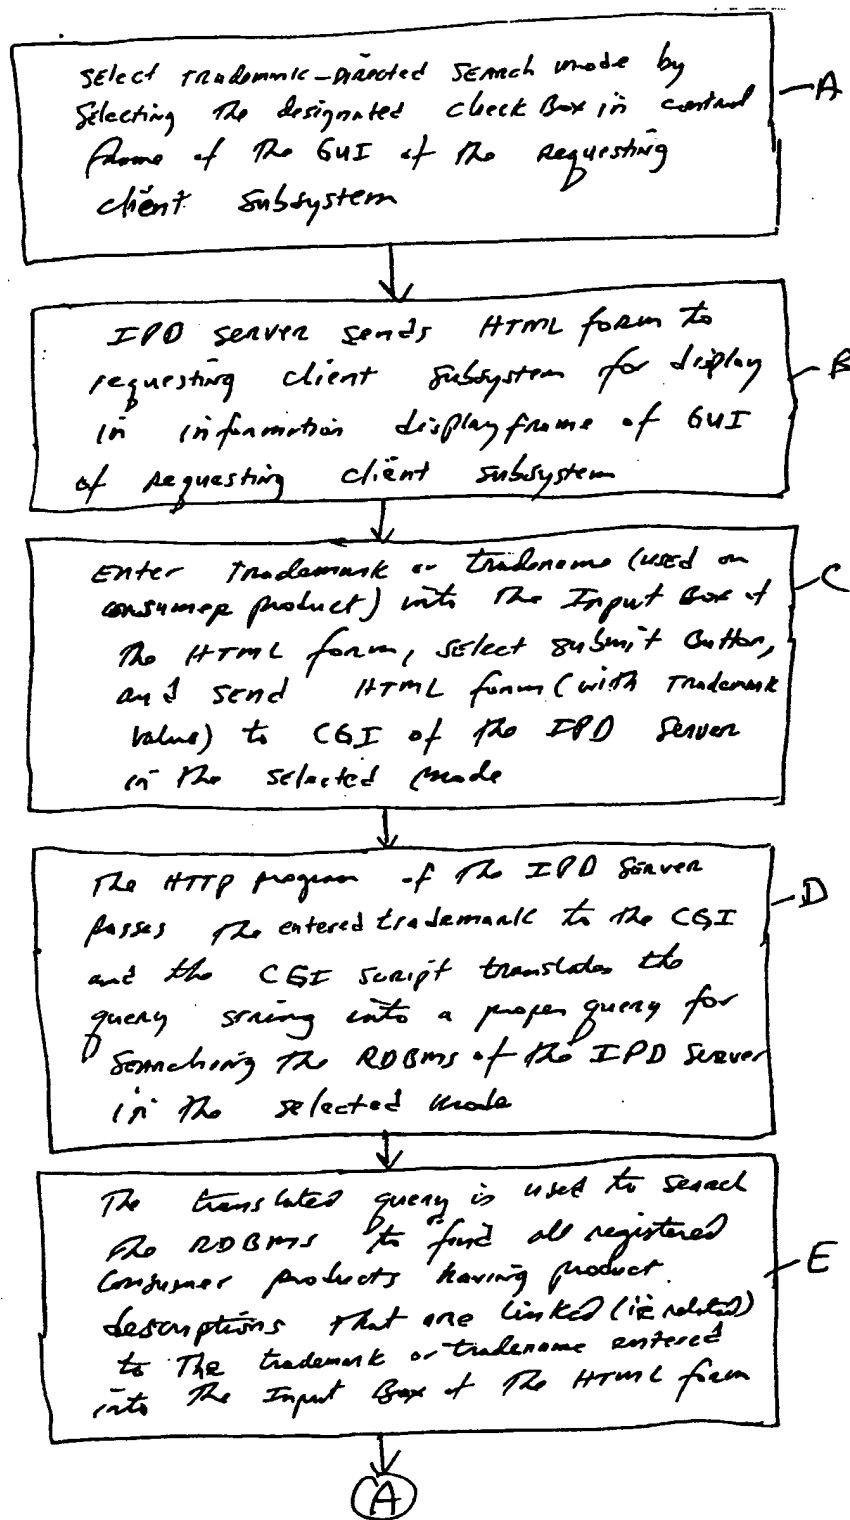 Select Trademark-Directed Search mode by
Selecting the designated check Box in control
frame of the GUI of the Requesting
client Subsystem
A
IPD Server sends HTML form to
requesting client subsystem for display
in information display frame of GUI
of Requesting client subsystem
B
Enter Trademark or tradename (used on
consumer product) into the Input Box of
the HTML form, select submit Button,
and send HTML form (with Trademark
value) to CGI of the IPD Server
in the selected mode
C
The HTTP program of the IPD Server
passes the entered trademark to the CGI
and the CGI script translates the
query string into a proper query for
Searching the RDBMS of the IPD Server
in the selected mode
D
The translated query is used to search
the RDBMS to find all registered
Consumer products having product
descriptions that are linked (ie related)
to the trademark or tradename entered
into the Input Box of the HTML form
E
A